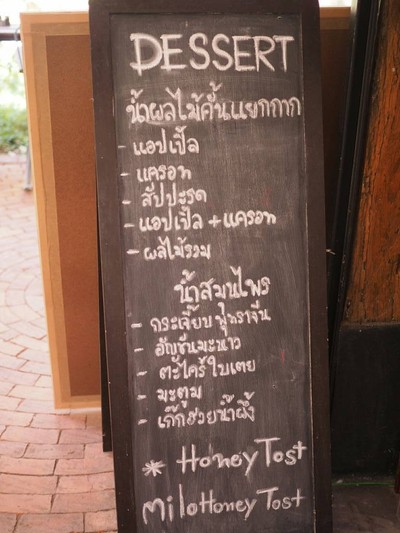 DESSERT
น้ำผลไม้คั้นแยกกาก
- แอปเปิ้ล
- แครอท
- สัปปะรด
- แอปเปิ้ล + แครอท
- ผลไม้รวม
น้ำสมุนไพร
- กระเจี๊ยบ พุทราจีน
- อัญชันมะนาว
- ตะไคร้ ใบเตย
- มะตูม
- เก๊กฮวยน้ำผึ้ง
* Honey Tost
Milo Honey Tost